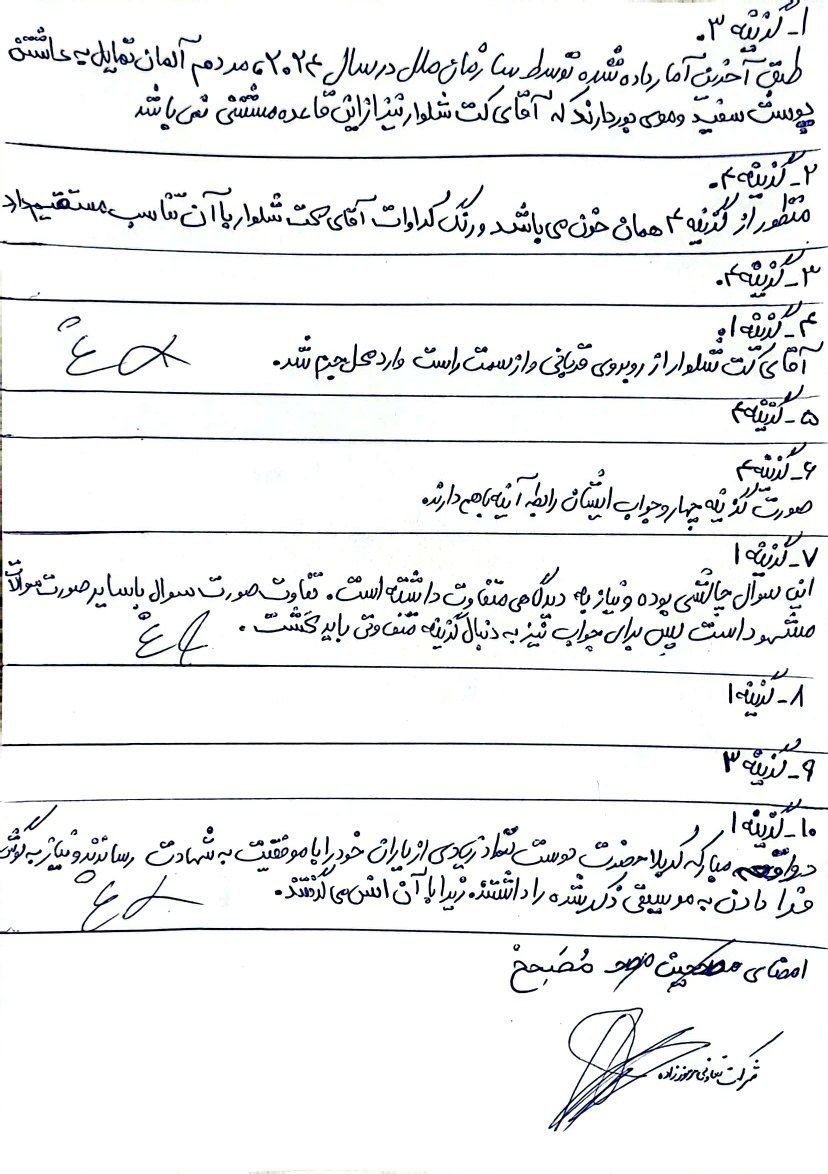 ۱- گزینه ۳.
طبق آخرین آمار داده شده توسط سازمان ملل در سال ۲۰۲۴، مردم آلمان تمایل به داشتن
پوست سفید و موی بور دارند که آقای کت شلوار نیز از این قاعده مستثنی نمی باشد
۲- گزینه ۴.
منظور از گزینه ۴ همان خون می باشد و رنگ کراوات آقای کت شلوار با آن تناسب مستقیم دارد
۳- گزینه ۴.
۴- گزینه ۱.
آقای کت شلوار از روبروی قربانی و از سمت راست وارد محل جرم شد.
۵- گزینه ۴
۶- گزینه ۴
صورت گزینه چهار و جواب ایشان رابطه آینه باهم دارند
۷- گزینه ۱
این سوال چالشی بوده و نیاز به دیدگاهی متفاوت داشته است. تفاوت صورت سوال با سایر صورت سوالات
مشهود است پس برای جواب نیز به دنبال گزینه متفاوتی باید گشت.
۸- گزینه ۱
۹- گزینه ۳
۱۰- گزینه ۱
در واقعه مبارکه کربلا حضرت دوست تعداد زیادی از یاران خود را با موفقیت به شهادت رساندند و نیاز به گوش
فرا دادن به موسیقی ذکر شده را داشتند. زیرا با آن انس می گرفتند.
امضای مصحح
شرکت تعاونی